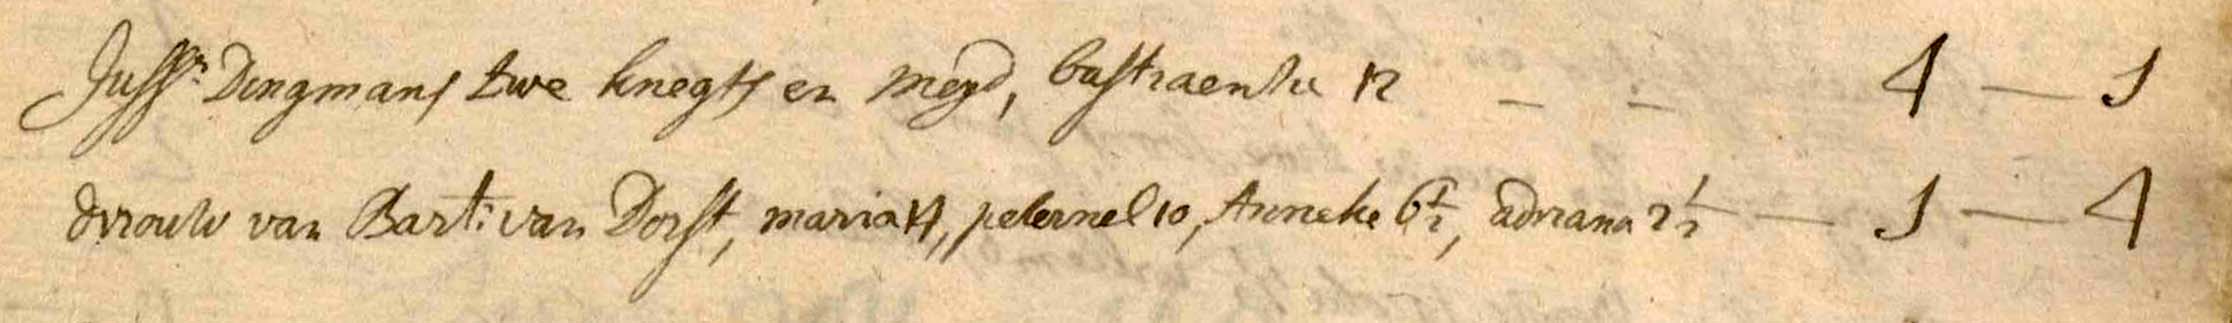 Juffr. Dingmans twe knegts en Meyd, bastiaenke 12 – – 4 — 1
dvrouw van Bart: van Dorst, maria 14, peternel 10, Anneke 6½, adriana 2½ — 1 — 4